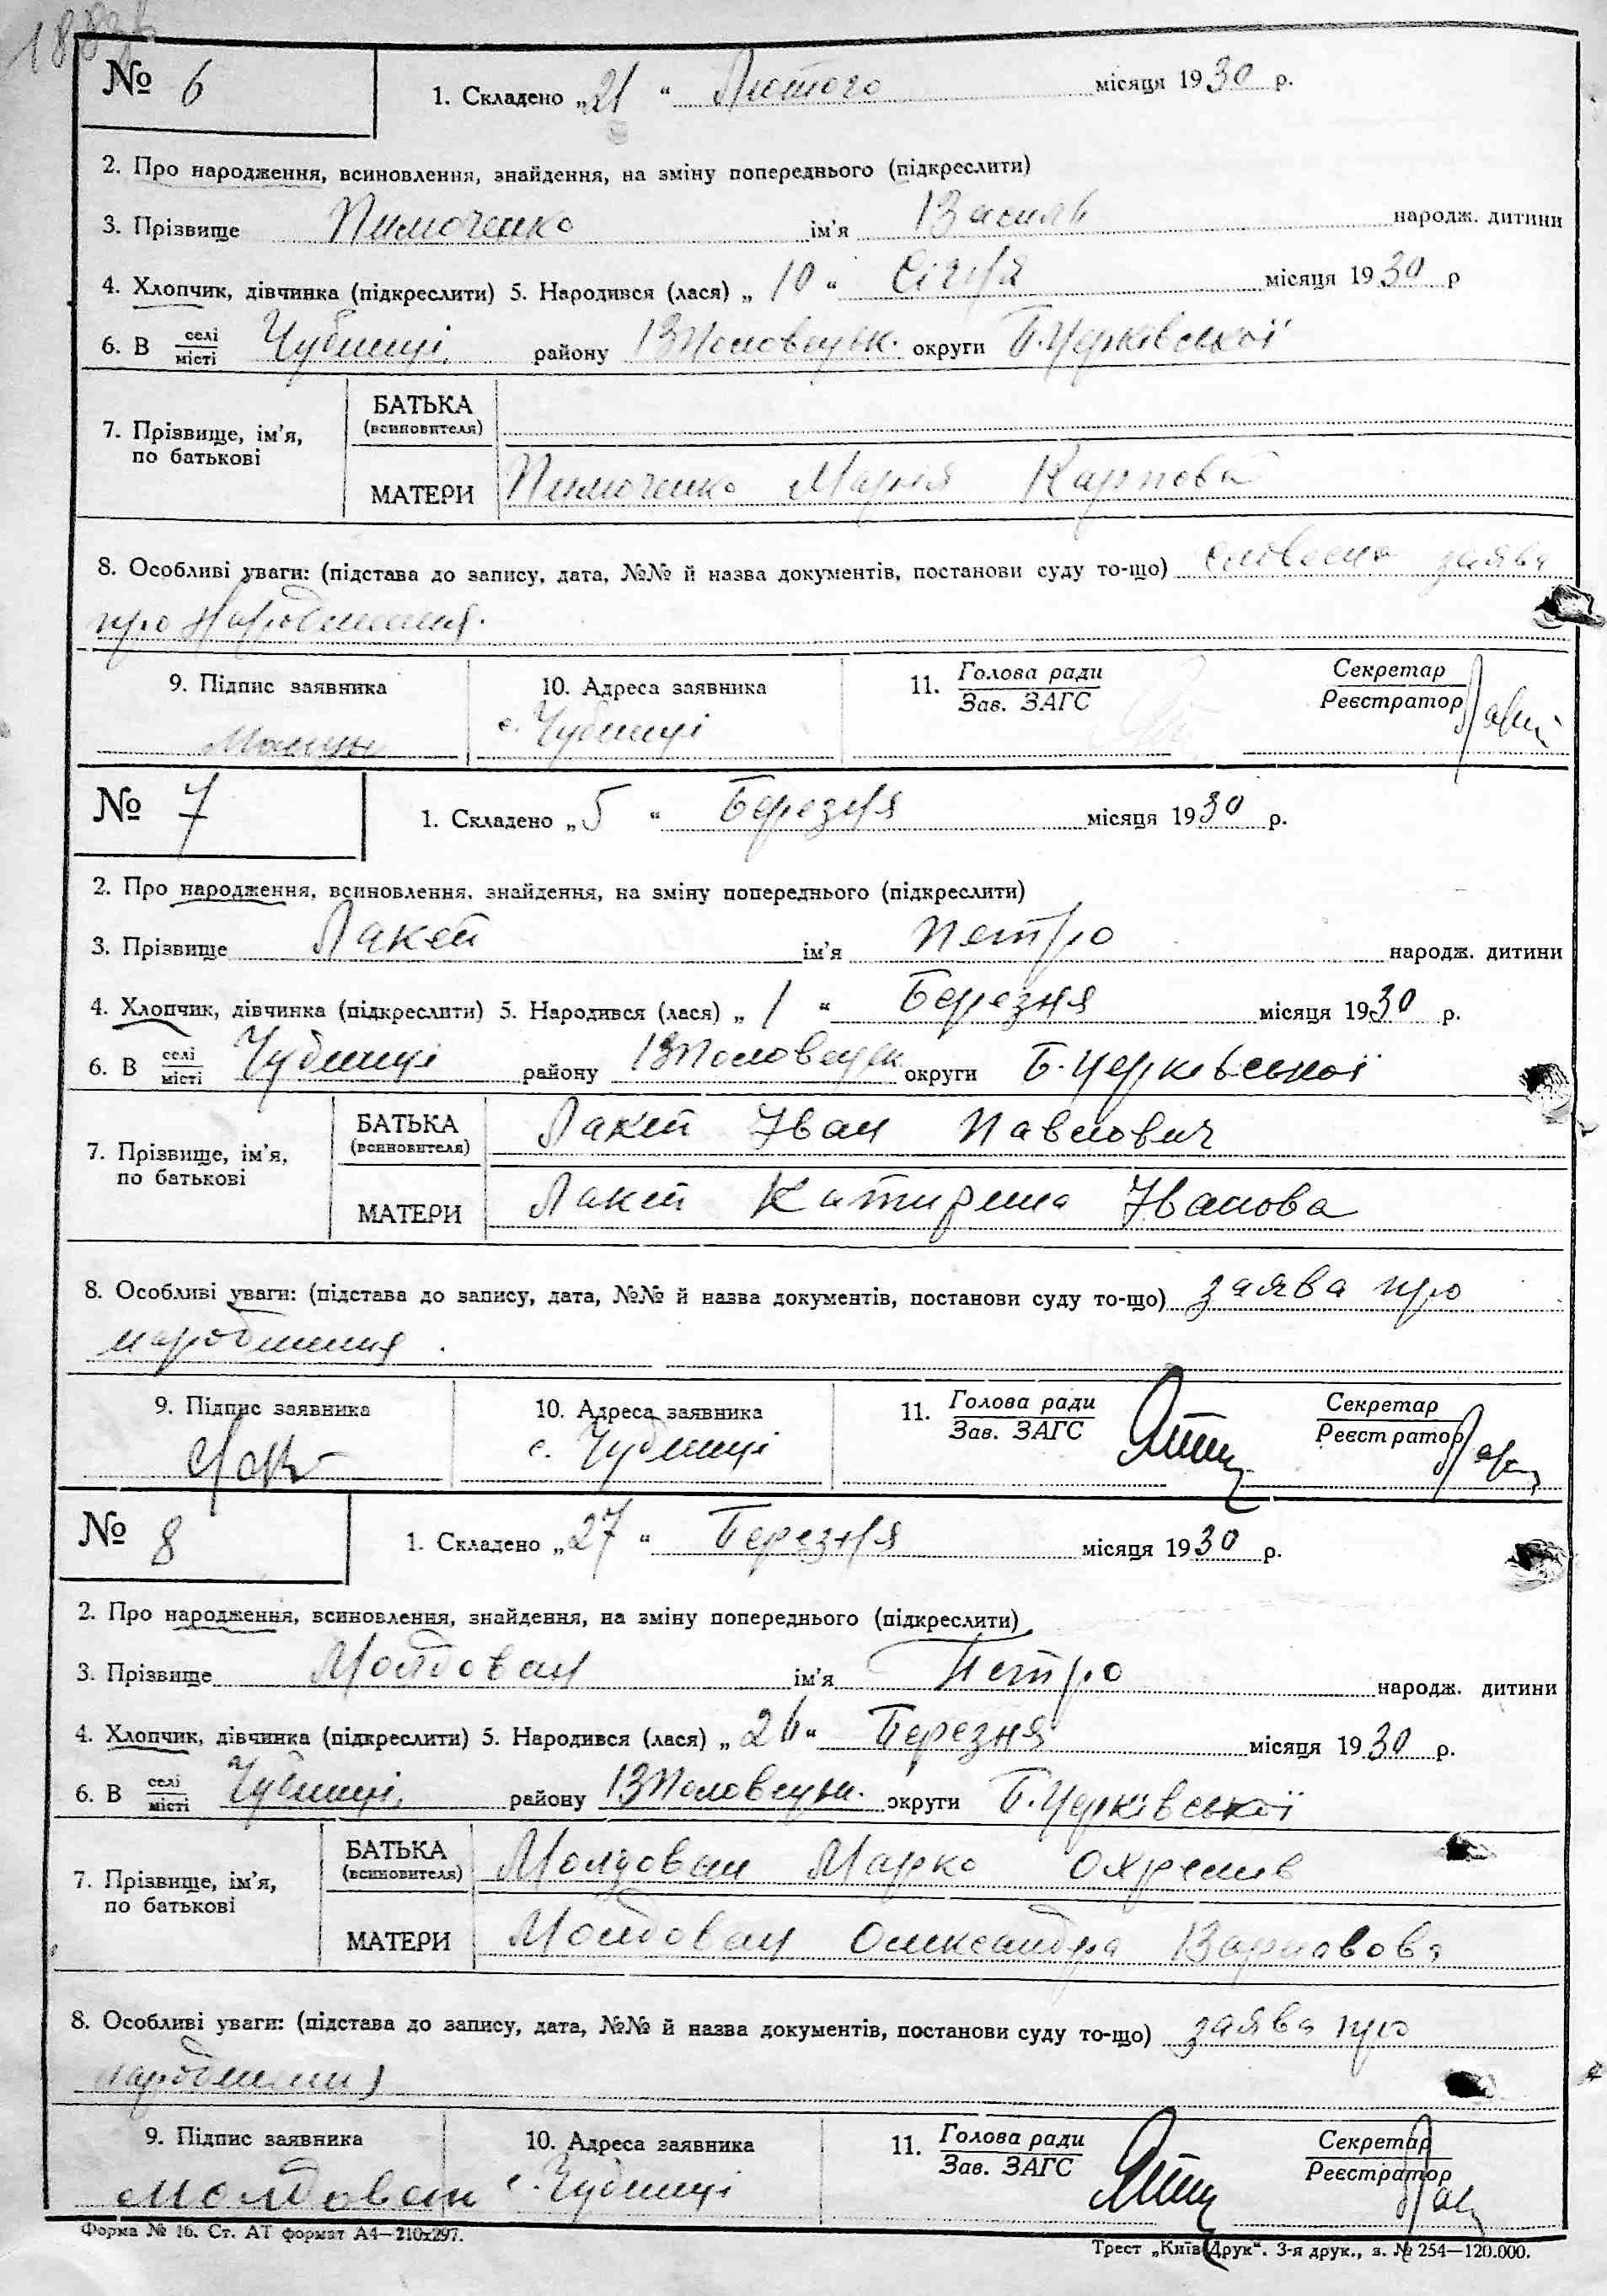 № 6
1. Складено „21“ Лютого місяця 1930 р.
2. Про народження, всиновлення, знайдення, на зміну попереднього (підкреслити)
3. Прізвище Пимоченко ім’я Василь народж. дитини
4. Хлопчик, дівчинка (підкреслити) 5. Народився (лася) „10“ Січня місяця 1930 р
6. В селі/місті Чубинці району ВПоловецьк. округи Б.Церківської
7. Прізвище, ім’я, по батькові
БАТЬКА (всиновителя)
МАТЕРИ Пимоченко Марія Карпова
8. Особливі уваги: (підстава до запису, дата, №№ й назва документів, постанови суду то-що) словесна заява
про народження.
9. Підпис заявника 10. Адреса заявника 11. Голова ради/Зав. ЗАГС Секретар/Реєстратор
с. Чубинці
№ 7
1. Складено „5“ Березня місяця 1930 р.
2. Про народження, всиновлення, знайдення, на зміну попереднього (підкреслити)
3. Прізвище Лакей ім’я Петро народж. дитини
4. Хлопчик, дівчинка (підкреслити) 5. Народився (лася) „1“ Березня місяця 1930 р.
6. В селі/місті Чубинці району ВПоловецьк округи Б.Церківської
7. Прізвище, ім’я, по батькові
БАТЬКА (всиновителя) Лакей Іван Павлович
МАТЕРИ Лакей Катирина Іванова
8. Особливі уваги: (підстава до запису, дата, №№ й назва документів, постанови суду то-що) заява про
народження.
9. Підпис заявника 10. Адреса заявника 11. Голова ради/Зав. ЗАГС Секретар/Реєстратор
с. Чубинці
№ 8
1. Складено „27“ Березня місяця 1930 р.
2. Про народження, всиновлення, знайдення, на зміну попереднього (підкреслити)
3. Прізвище Молдован ім’я Петро народж. дитини
4. Хлопчик, дівчинка (підкреслити) 5. Народився (лася) „26“ Березня місяця 1930 р.
6. В селі/місті Чубинці району ВПоловецьк. округи Б.Церківської
7. Прізвище, ім’я, по батькові
БАТЬКА (всиновителя) Молдован Марко Охремів
МАТЕРИ Молдован Олександра Варнавова
8. Особливі уваги: (підстава до запису, дата, №№ й назва документів, постанови суду то-що) заява про
народження
9. Підпис заявника 10. Адреса заявника 11. Голова ради/Зав. ЗАГС Секретар/Реєстратор
Молдован с. Чубинці
Форма № 16. Ст. АТ формат А4—210х297.
Трест „Київ-Друк“. 3-я друк., з. № 254—120.000.